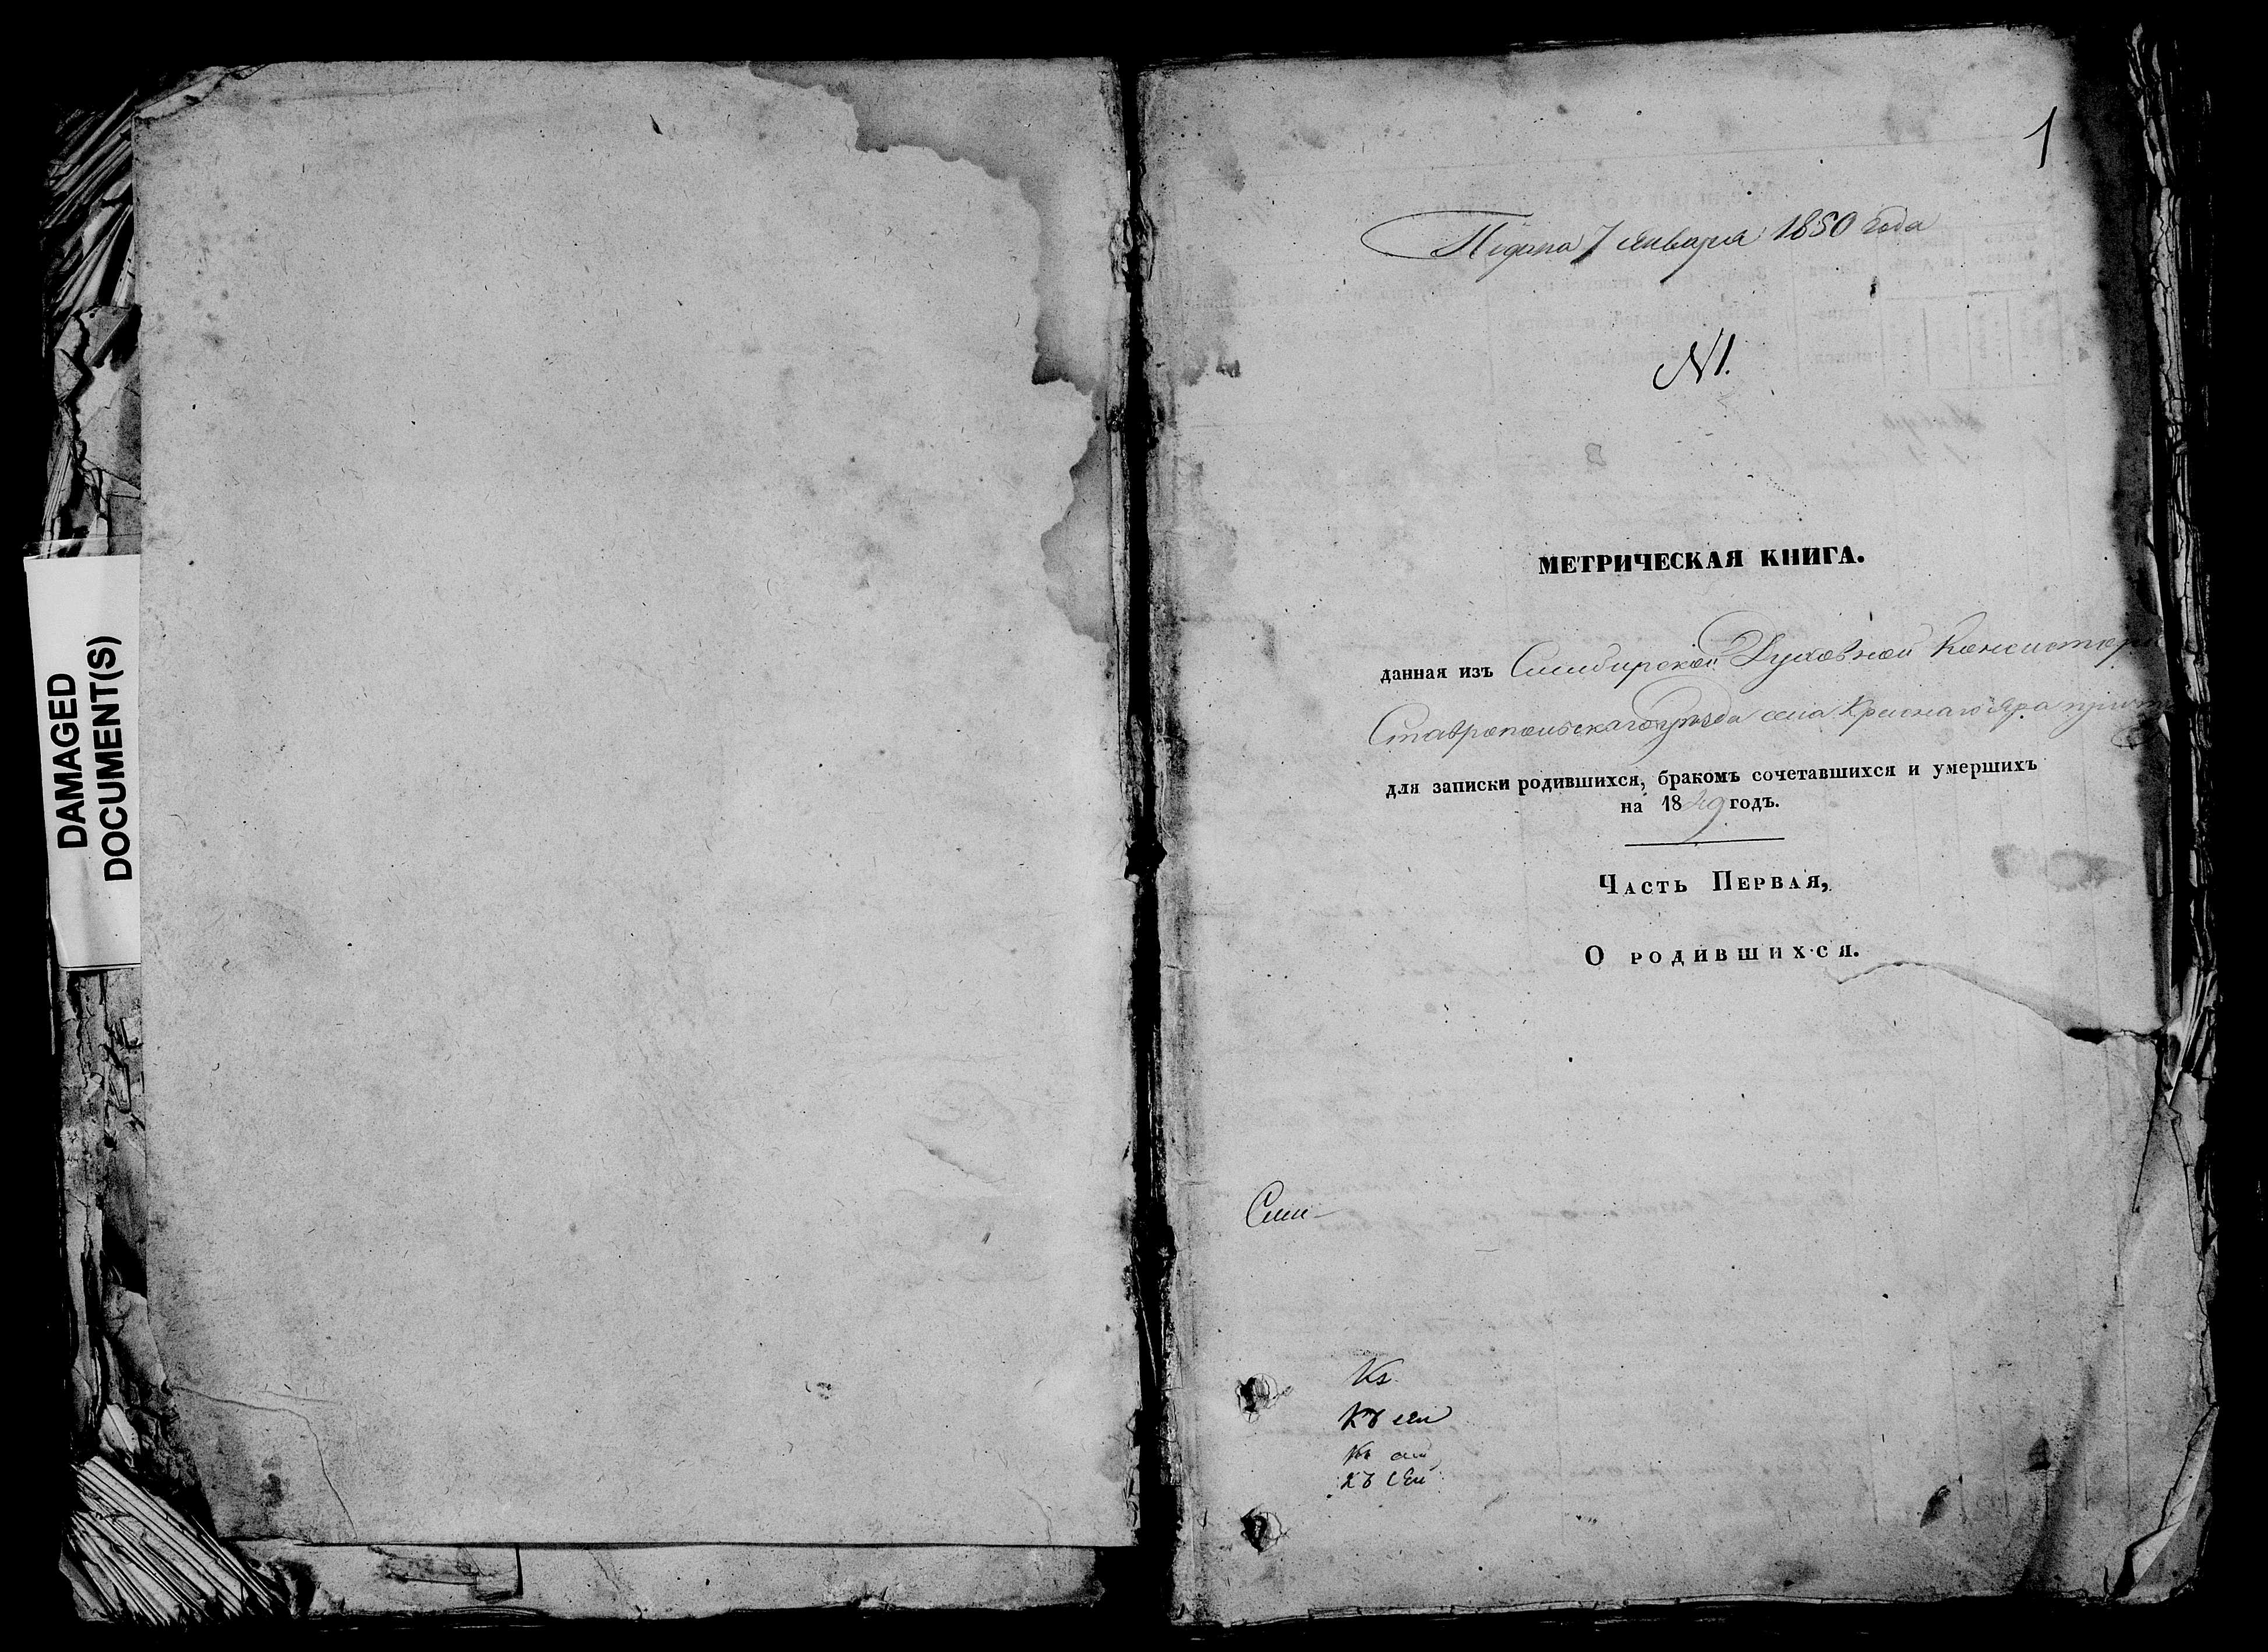 DAMAGED
DOCUMENT(S)
1
Подана 7 января 1850 года
N 1.
МЕТРИЧЕСКАЯ КНИГА.
данная изъ Симбирской Духовной Консистор
Ставропольскаго уѣзда села Краснаго Яра
для записки родившихся, бракомъ сочетавшихся и умершихъ
на 1849 годъ.
Часть Первая,
О родившихся.
Сим-
Къ
Къ сей
Къ сей
Къ сей